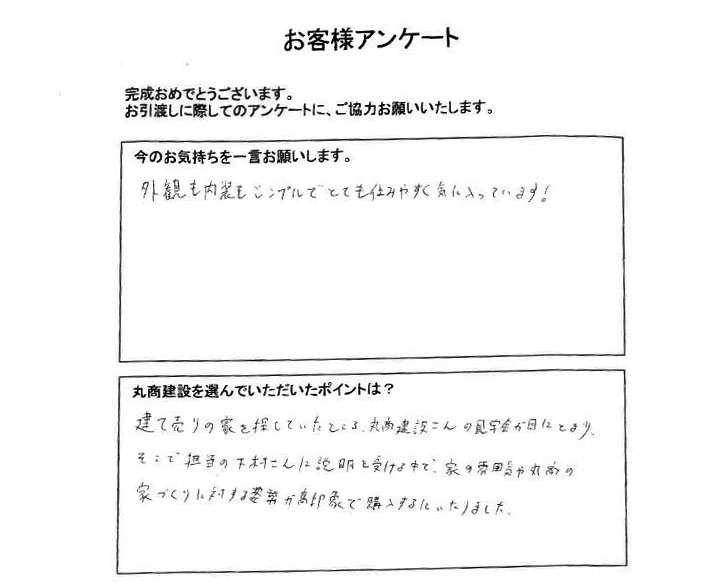 お客様アンケート
完成おめでとうございます。
お引渡しに際してのアンケートに、ご協力お願いいたします。
今のお気持ちを一言お願いします。
外観も内装もシンプルでとても住みやすく気に入っています!
丸商建設を選んでいただいたポイントは?
建て売りの家を探していたところ、丸商建設さんの見学会が目にとまり、
そこで担当の下村さんに説明を受ける中で、家の雰囲気や丸商の
家づくりに対する姿勢が高印象で購入するにいたりました。